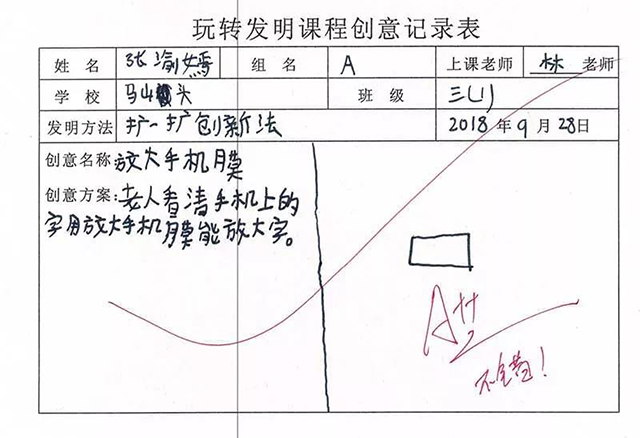 玩转发明课程创意记录表
姓名 张瑜嫣 组名 A 上课老师 林老师
学校 马山头 班级 三(1)
发明方法 扩一扩创新法 2018年9月28日
创意名称:放大手机膜
创意方案:老人看清手机上的
字用放大手机膜能放大字。
A++
不错!